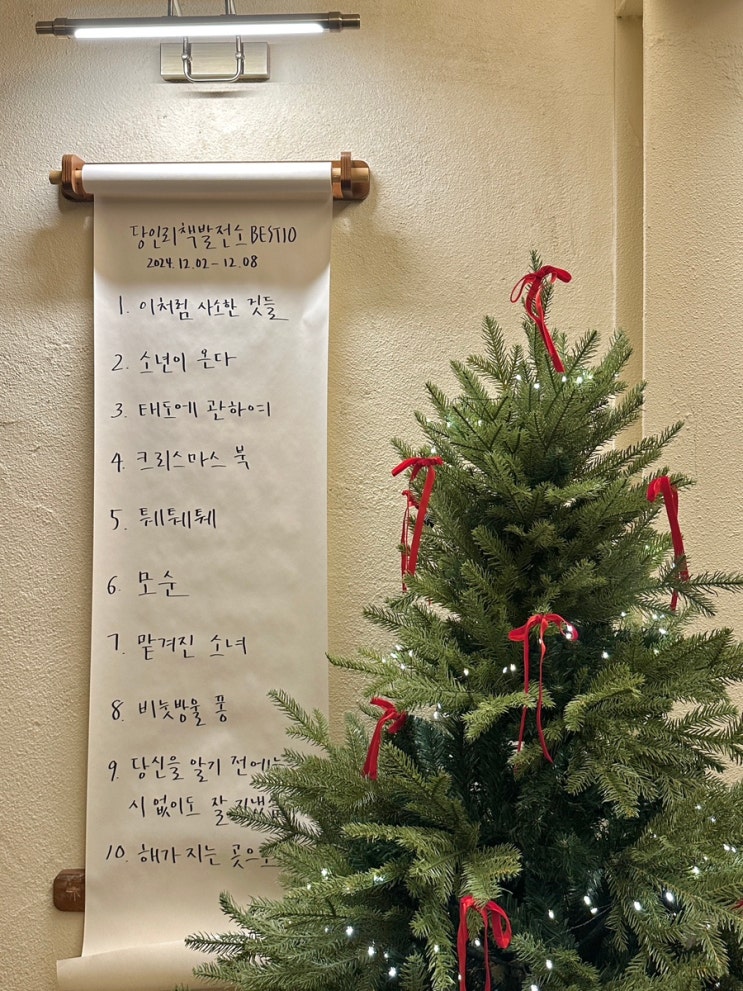 당인리책발전소 BEST10
2024. 12. 02 - 12. 08
1. 이처럼 사소한 것들
2. 소년이 온다
3. 태도에 관하여
4. 크리스마스 북
5. 퉤퉤퉤
6. 모순
7. 맡겨진 소녀
8. 비눗방울 퐁
9. 당신을 알기 전에는
시 없이도 잘 지냈습
10. 해가 지는 곳으로